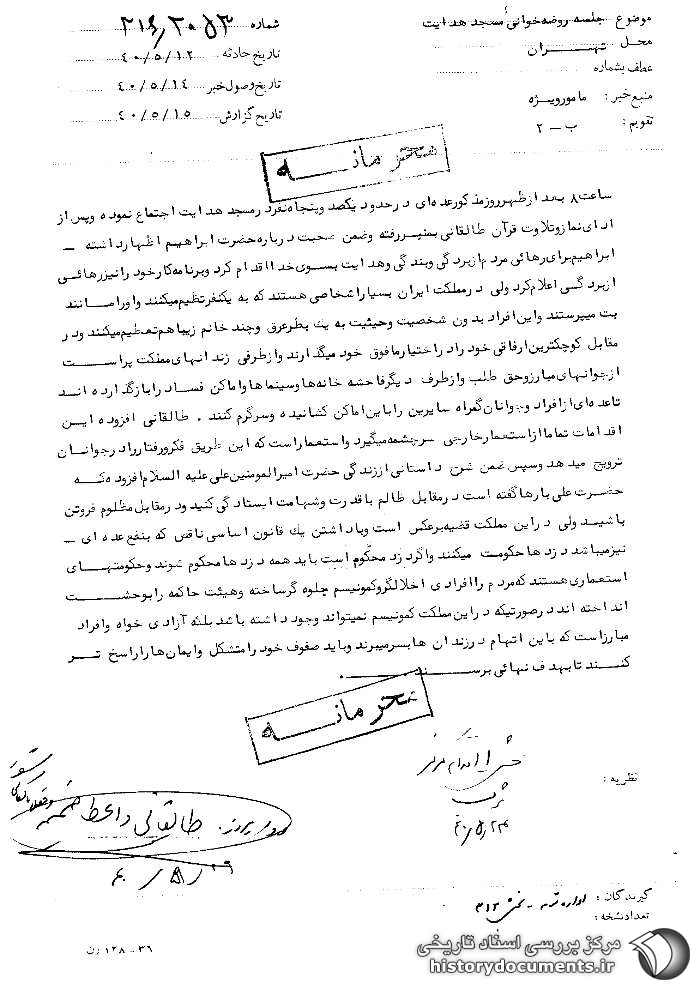 موضوع: جلسه روضه‌خوانی مسجد هدایت
محل: تهـــران
عطف بشماره
منبع خبر: مامور ویــژه
تقویم: ب - ۲
شماره ۳۱۶/۲۰۵۳
تاریخ حادثه ۴۰/۵/۱۲
تاریخ وصول خبر ۴۰/۵/۱۴
تاریخ گزارش ۴۰/۵/۱۵
محرمانه
ساعت ۸ بعد از ظهر روز مذکور عده‌ای در حدود یکصد و پنجاه نفر در مسجد هدایت اجتماع نموده و پس از
ادای نماز و تلاوت قرآن طالقانی بمنبر رفته و ضمن صحبت درباره حضرت ابراهیم اظهار داشته -
ابراهیم برای رهائی مردم از بردگی و بندگی و هدایت بسوی خدا اقدام کرد و برنامه کار خود را نیز رهائی
از بردگی اعلام کرد ولی در مملکت ایران بسیار اشخاصی هستند که به یکنفر تعظیم میکنند و او را مانند
بت میپرستند و این افراد بدون شخصیت و حیثیت به یک بطر عرق و چند خانم زیبا هم تعظیم میکنند و در
مقابل کوچکترین ارفاقی خود را در اختیار مافوق خود میگذارند و از طرفی زندانهای مملکت پر است
از جوانهای مبارز و حق طلب و از طرف دیگر فاحشه خانه‌ها و سینماها و اماکن فساد را باز گذارده اند
تا عده‌ای از افراد و جوانان گمراه سایرین را باین اماکن کشانیده و سرگرم کنند . طالقانی افزوده این
اقدامات تماما از استعمار خارجی سرچشمه میگیرد و استعمار است که این طریق فکر و رفتار را در جوانان
ترویج میدهد و سپس ضمن شرح داستانی از زندگی حضرت امیرالمومنین علی علیه السلام افزوده که
حضرت علی بارها گفته است در مقابل ظالم با قدرت و شهامت ایستادگی کنید و در مقابل مظلوم فروتن
باشید ولی در این مملکت قضیه برعکس است و با داشتن یک قانون اساسی ناقص که بنفع عده‌ای -
نیز میباشد دزدها حکومت میکنند و اگر دزد محکوم است باید همه دزدها محکوم شوند و حکومتهای
استعماری هستند که مردم را افرادی اخلالگر و کمونیسم جلوه گر ساخته و هیئت حاکمه را بوحشت
انداخته اند در صورتیکه در این مملکت کمونیسم نمیتواند وجود داشته باشد بلکه آزادی خواه و افراد
مبارز است که با این اتهام در زندان ها بسر میبرند و باید صفوف خود را متشکل و ایمان‌ها را راسخ تر
کنند تا بهدف نهائی برسند.
محرمانه
نظریه:
۴۰/۵/۲۴
طالقانی واعظ ضمیمه
۴۰/۵/۲۶
گیرندگان: اداره - بخش ۳۱۲
تعداد نسخه:
۳۶ - ۱۲۸ ژن
مرکز بررسی اسناد تاریخی
historydocuments.ir